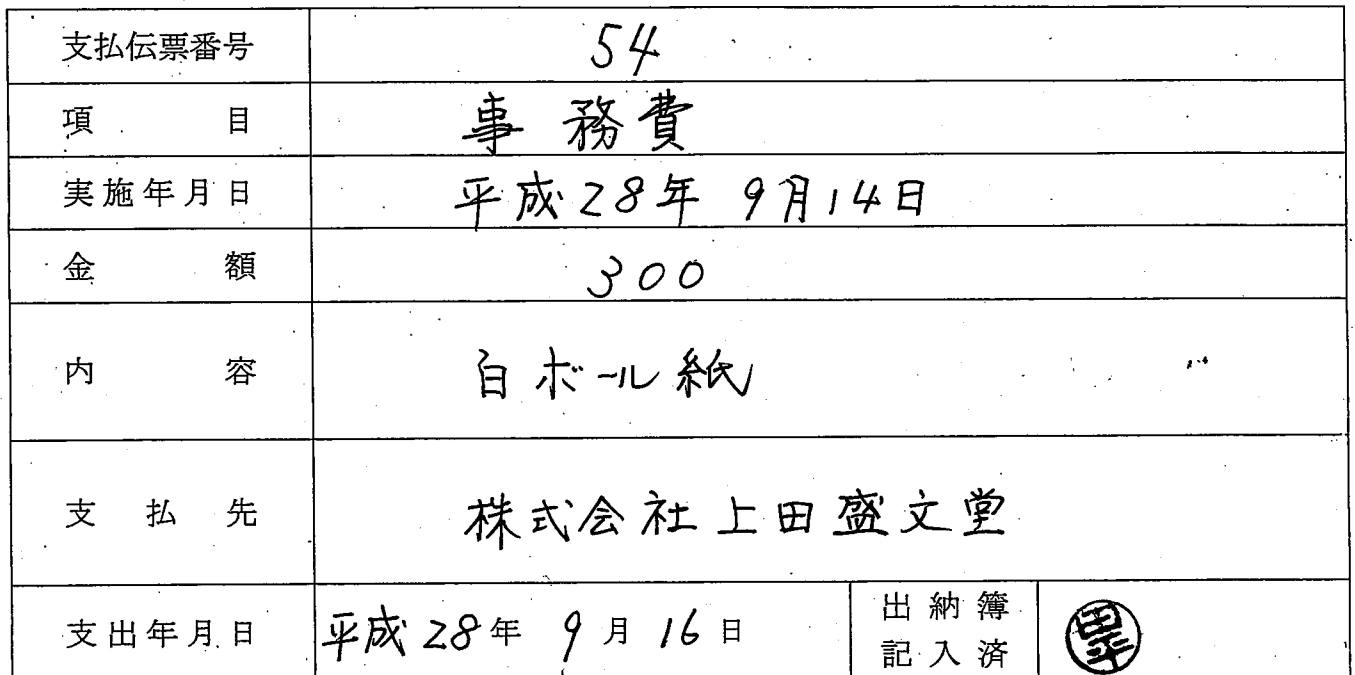 支払伝票番号 54
項目 事務費
実施年月日 平成28年 9月14日
金額 300
内容 白ボール紙
支払先 株式会社上田盛文堂
支出年月日 平成28年 9月16日 出納簿
記入済